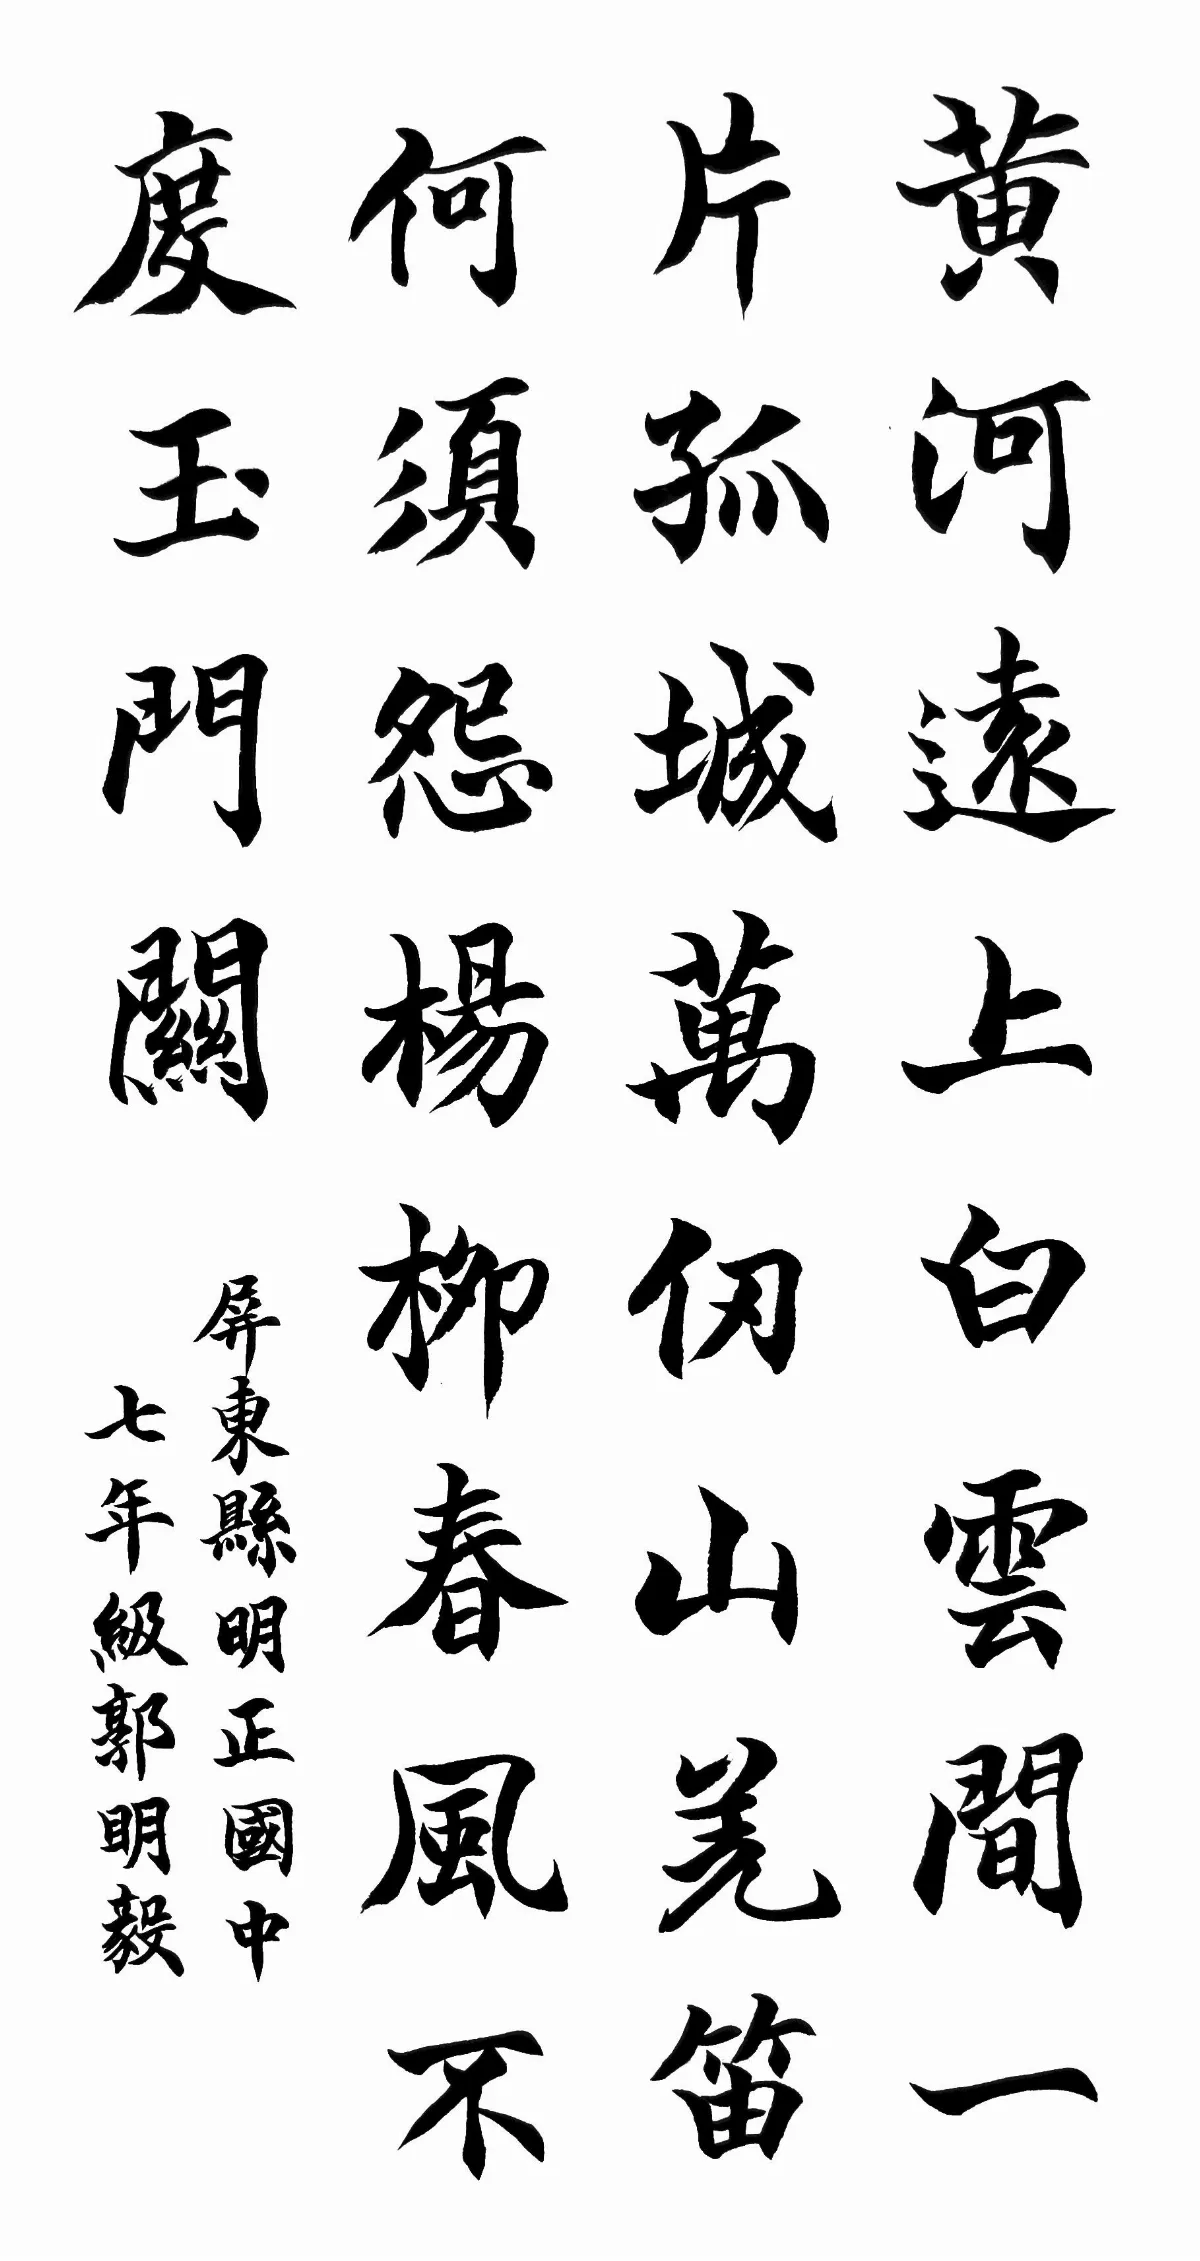 黃河遠上白雲間一
片孤城萬仞山羌笛
何須怨楊柳春風不
度玉門關
屏東縣明正國中
七年級郭明毅